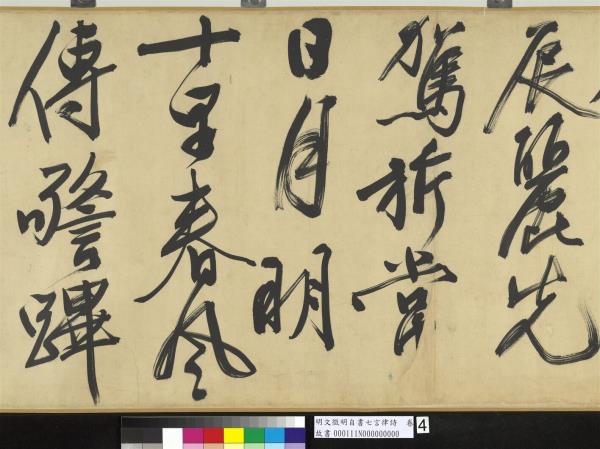 辰麗先
駕旂常
日月明
十里春風
傳警蹕
明文徵明自書七言律詩 卷
故書 000111N000000000
4